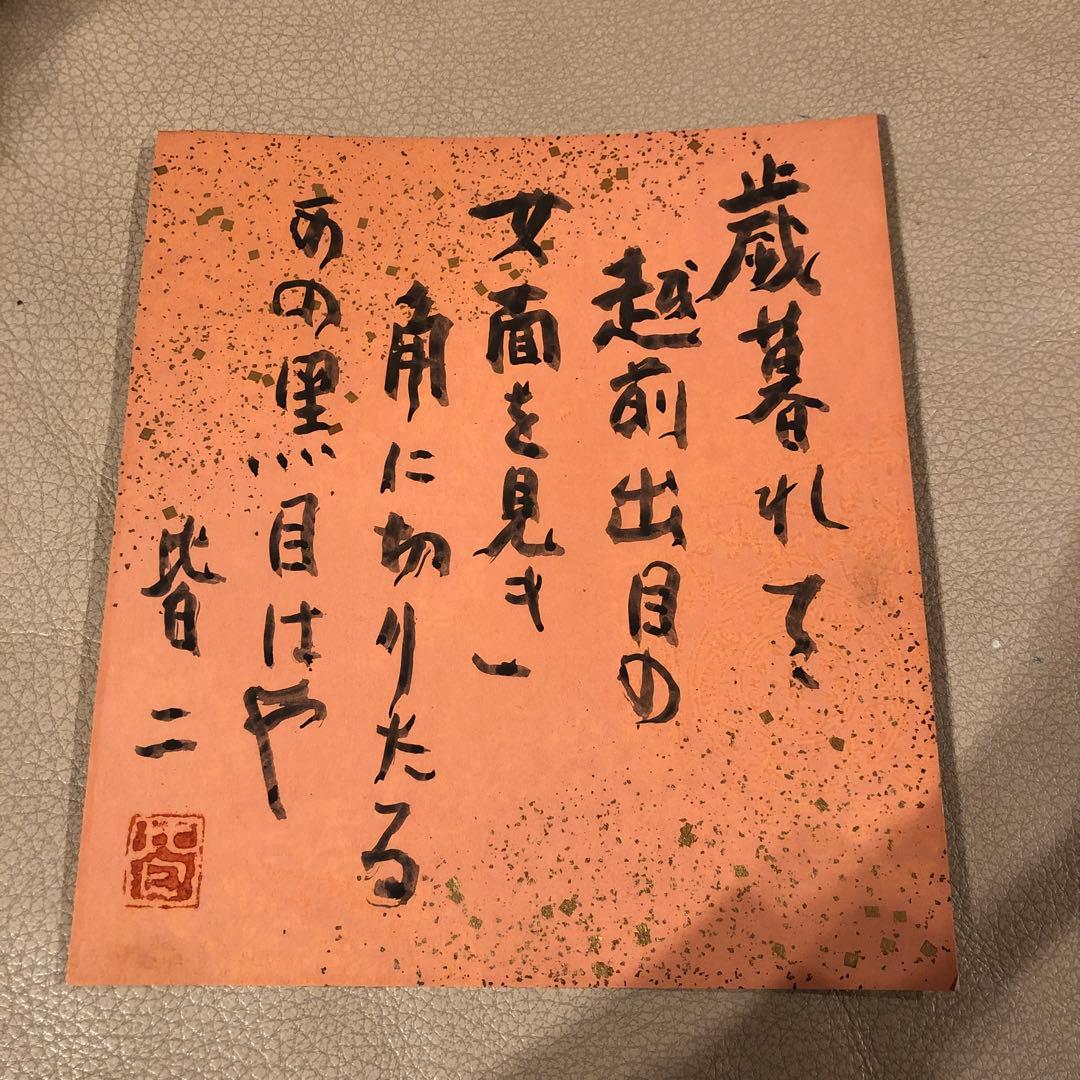 歳暮れて
越前出目の
女面を見き
角に切りたる
あの黒目はや
皆二
皆